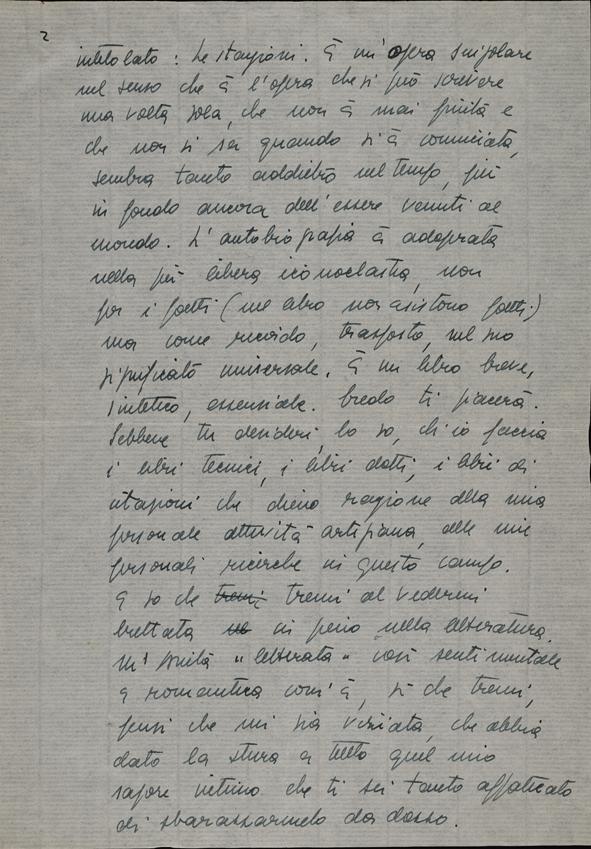 2
intitolato: Le stagioni. È un'opera singolare
nel senso che è l'opera che si può scrivere
una volta sola, che non è mai finita e
che non si sa quando si è cominciata,
sembra tanto addietro nel tempo, più
in fondo ancora dell'essere venuti al
mondo. L'autobiografia è adoprata
nella più libera iconoclastia, non
per i fatti (nel libro non esistono fatti)
ma come ricordo, trasposto, nel suo
significato universale. È un libro breve,
sintetico, essenziale. Credo ti piacerà.
Sebbene tu desideri, lo so, ch'io faccia
i libri tecnici, i libri dotti, i libri di
citazioni che diano ragione della mia
personale attività artigiana, delle mie
personali ricerche in questo campo.
E so che tremi tremi al vedermi
buttata in pieno nella letteratura.
"letterata" così sentimentale
e romantica com'è, sì che tremi,
pensi che mi sia viziata, che abbia
dato la stura a tutto quel mio
sapore intimo che ti sei tanto affaticato
di sbarazzarmelo da dosso.